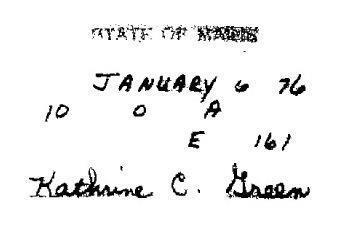 STATE OF
JANUARY 6 76
10 0 A
E 161
Kathrine C. Green